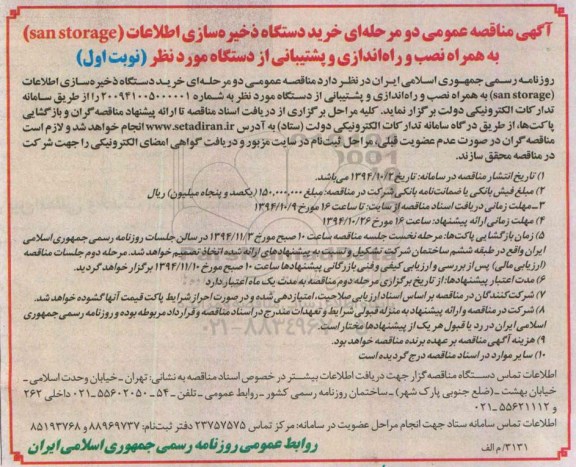 آگهی مناقصه عمومی دو مرحله‌ای خرید دستگاه ذخیره‌سازی اطلاعات (san storage)
به همراه نصب و راه‌اندازی و پشتیبانی از دستگاه مورد نظر (نوبت اول)
روزنامه رسمی جمهوری اسلامی ایران در نظر دارد مناقصه عمومی دو مرحله‌ای خرید دستگاه ذخیره‌سازی اطلاعات
(san storage) به همراه نصب و راه‌اندازی و پشتیبانی از دستگاه مورد نظر به شماره ۲۰۰۹۴۱۰۰۵۰۰۰۰۰۱ را از طریق سامانه
تدارکات الکترونیکی دولت برگزار نماید. کلیه مراحل برگزاری از دریافت اسناد مناقصه تا ارائه پیشنهاد مناقصه‌گران و بازگشایی
پاکت‌ها، از طریق درگاه سامانه تدارکات الکترونیکی دولت (ستاد) به آدرس www.setadiran.ir انجام خواهد شد و لازم است
مناقصه‌گران در صورت عدم عضویت قبلی، مراحل ثبت‌نام در سایت مزبور و دریافت گواهی امضای الکترونیکی را جهت شرکت
در مناقصه محقق سازند.
۱) تاریخ انتشار مناقصه در سامانه: تاریخ ۱۳۹۴/۱۰/۲ می‌باشد.
۲) مبلغ فیش بانکی یا ضمانت‌نامه بانکی شرکت در مناقصه: مبلغ ۱۵۰,۰۰۰,۰۰۰ (یکصد و پنجاه میلیون) ریال
۳- مهلت زمانی دریافت اسناد مناقصه از سایت: تا ساعت ۱۶ مورخ ۱۳۹۴/۱۰/۹
۴) مهلت زمانی ارائه پیشنهاد: ساعت ۱۶ مورخ ۱۳۹۴/۱۰/۲۶
۵) زمان بازگشایی پاکت‌ها: مرحله نخست جلسه مناقصه ساعت ۱۰ صبح مورخ ۱۳۹۴/۱۱/۳ در سالن جلسات روزنامه رسمی جمهوری اسلامی
ایران واقع در طبقه ششم ساختمان شرکت تشکیل و نسبت به پیشنهادهای ارائه شده اتخاذ تصمیم خواهد شد. مرحله دوم جلسات مناقصه
(ارزیابی مالی) پس از بررسی و ارزیابی کیفی و فنی بازرگانی پیشنهادها ساعت ۱۰ صبح مورخ ۱۳۹۴/۱۱/۱۰ برگزار خواهد گردید.
۶) مدت اعتبار پیشنهادها: از تاریخ برگزاری مرحله دوم مناقصه به مدت یک ماه اعتبار دارد
۷) شرکت‌کنندگان در مناقصه بر اساس اسناد ارزیابی صلاحیت، امتیازدهی شده و در صورت احراز شرایط پاکت قیمت آنها گشوده خواهد شد.
۸) شرکت در مناقصه و ارائه پیشنهاد به منزله قبولی شرایط و تعهدات مندرج در اسناد مناقصه و قرارداد مربوطه بوده و روزنامه رسمی جمهوری
اسلامی ایران در رد یا قبول هر یک از پیشنهادها مختار است.
۹) هزینه آگهی مناقصه بر عهده برنده مناقصه خواهد بود.
۱۰) سایر موارد در اسناد مناقصه درج گردیده است
اطلاعات تماس دستگاه مناقصه‌گزار جهت دریافت اطلاعات بیشتر در خصوص اسناد مناقصه به نشانی: تهران - خیابان وحدت اسلامی -
خیابان بهشت - (ضلع جنوبی پارک شهر) - ساختمان روزنامه رسمی کشور - روابط عمومی - تلفن - ۵۴ - ۵۵۶۰۲۰۵۰-۰۲۱ داخلی ۲۶۲
و ۵۵۶۲۱۱۱۲-۰۲۱
اطلاعات تماس سامانه ستاد جهت انجام مراحل عضویت در سامانه: مرکز تماس ۲۳۷۵۷۵۷۵ دفتر ثبت‌نام: ۸۸۹۶۹۷۳۷ و ۸۵۱۹۳۷۶۸
۳۱۳۱/م الف
روابط عمومی روزنامه رسمی جمهوری اسلامی ایران